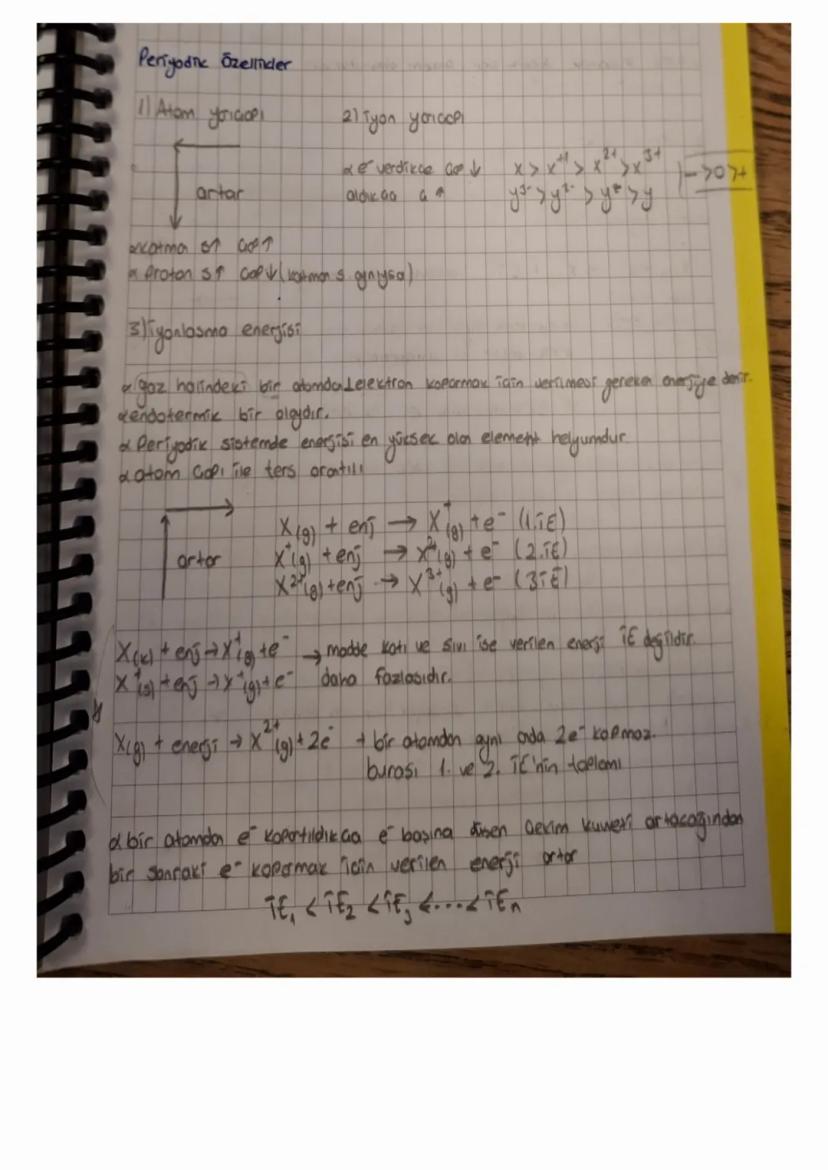 Periyodik Özellikler
1) Atom yarıçapı
2) İyon yarıçapı
α e⁻ verdikçe çap ↓ x > x⁺¹ > x²⁺ > x³⁺ |->0>+
artar
aldıkça ç ↑ y³⁻ > y²⁻ > y⁻ > y
α katma s↑ çap↑
α proton s↑ çap↓ (katman s aynıysa)
3) İyonlaşma enerjisi
α gaz halindeki bir atomda 1 elektron koparmak için verilmesi gereken enerjiye denir.
α endotermik bir olaydır.
α Periyodik sistemde enerjisi en yüksek olan element helyumdur
α atom çapı ile ters orantılı
X(g) + enj → X⁺(g) + e⁻ (1.İE)
artar
X⁺(g) + enj → X²⁺(g) + e⁻ (2.İE)
X²⁺(g) + enj → X³⁺(g) + e⁻ (3İE)
X(k) + enj → X⁺(g) + e⁻ → madde katı ve sıvı ise verilen enerji İE değildir.
X⁺(s) + enj → X⁺(g) + e⁻ daha fazlasıdır.
X(g) + energi → X²⁺(g) + 2e⁻ → bir atomdan aynı anda 2e⁻ kopmaz.
burası 1. ve 2. İE'nin toplamı
α bir atomdan e⁻ kopartıldıkça e⁻ başına düşen çekim kuvveti artacağından
bir sonraki e⁻ koparmak için verilen enerji artar
İE₁ < İE₂ < İE₃ < ... < İEₙ